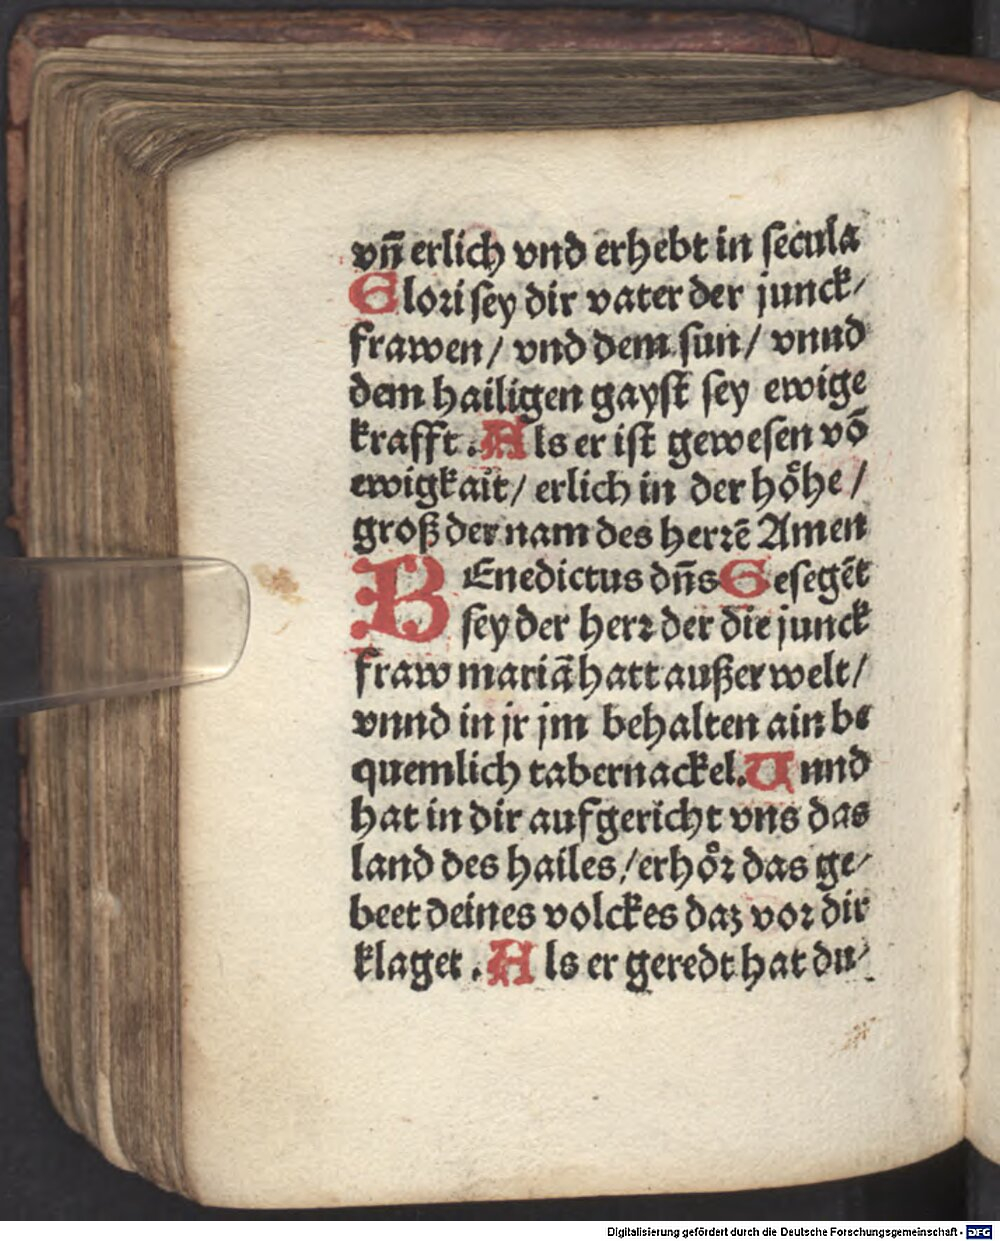 vn̄ erlich vnd erhebt in secula
Glori sey dir vater der junck/
frawen / vnd dem sun / vnnd
dem hailigen gayst sey ewige
krafft. Als er ist gewesen vō
ewigkait / erlich in der hoͤhe /
groß der nam des herrē Amen
BEnedictus dn̄s Gesegēt
sey der herr der die junck
fraw mariā hatt außerwelt /
vnnd in jr jm behalten ain be
quemlich tabernackel. Vnnd
hat in dir aufgericht vns das
land des hailes / erhoͤr das ge/
beet deines volckes daz vor dir
klaget. Als er geredt hat du/
Digitalisierung gefördert durch die Deutsche Forschungsgemeinschaft - DFG